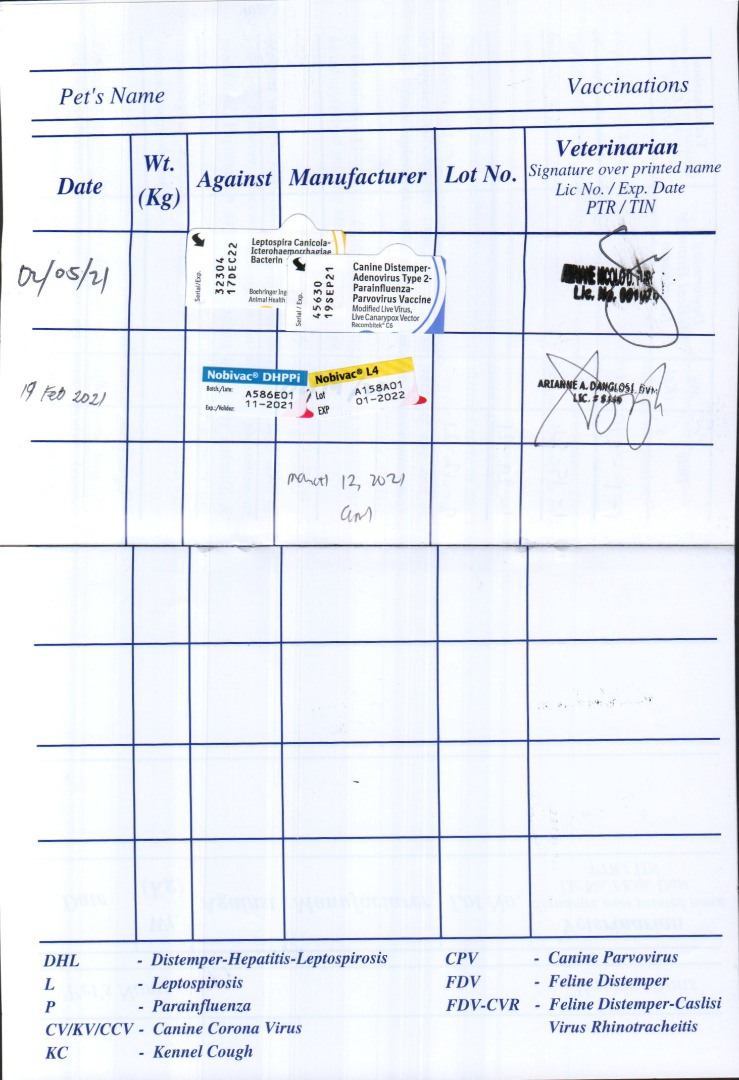 Pet's Name Vaccinations
Date Wt. (Kg) Against Manufacturer Lot No. Veterinarian
Signature over printed name
Lic No. / Exp. Date
PTR / TIN
02/05/21
Leptospira Canicola-
Icterohaemorrhagiae
Bacterin
Serial/Exp.
32304
17DEC22
Boehringer Ing
Animal Health
Canine Distemper-
Adenovirus Type 2-
Parainfluenza-
Parvovirus Vaccine
Modified Live Virus,
Live Canarypox Vector
Recombitek® C6
Serial / Exp.
45630
19SEP21
Lic. No.
19 Feb 2021
Nobivac® DHPPi
Batch/Lote: A586E01
Exp./Validez: 11-2021
Nobivac® L4
Lot A158A01
EXP 01-2022
ARIANNE A. DANGLOSI, DVM
LIC. #
March 12, 2021
DHL - Distemper-Hepatitis-Leptospirosis
L - Leptospirosis
P - Parainfluenza
CV/KV/CCV - Canine Corona Virus
KC - Kennel Cough
CPV - Canine Parvovirus
FDV - Feline Distemper
FDV-CVR - Feline Distemper-Caslisi
Virus Rhinotracheitis